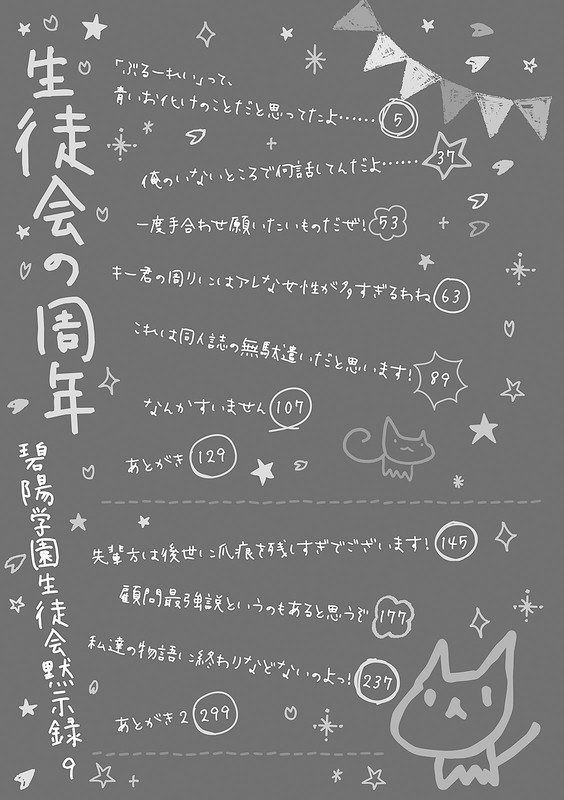 生徒会の周年
碧陽学園生徒会黙示録9
「ぶるーれい」って、
青いお化けのことだと思ってたよ…… 5
俺のいないところで何話してんだよ…… 37
一度手合わせ願いたいものだぜ! 53
キー君の周りにはアレな女性が多すぎるわね 63
これは同人誌の無駄遣いだと思います! 89
なんかすいません 107
あとがき 129
先輩方は後世に爪痕を残しすぎでございます! 145
顧問最強説というのもあると思うぞ 177
私達の物語に終わりなどないのよっ! 237
あとがき2 299